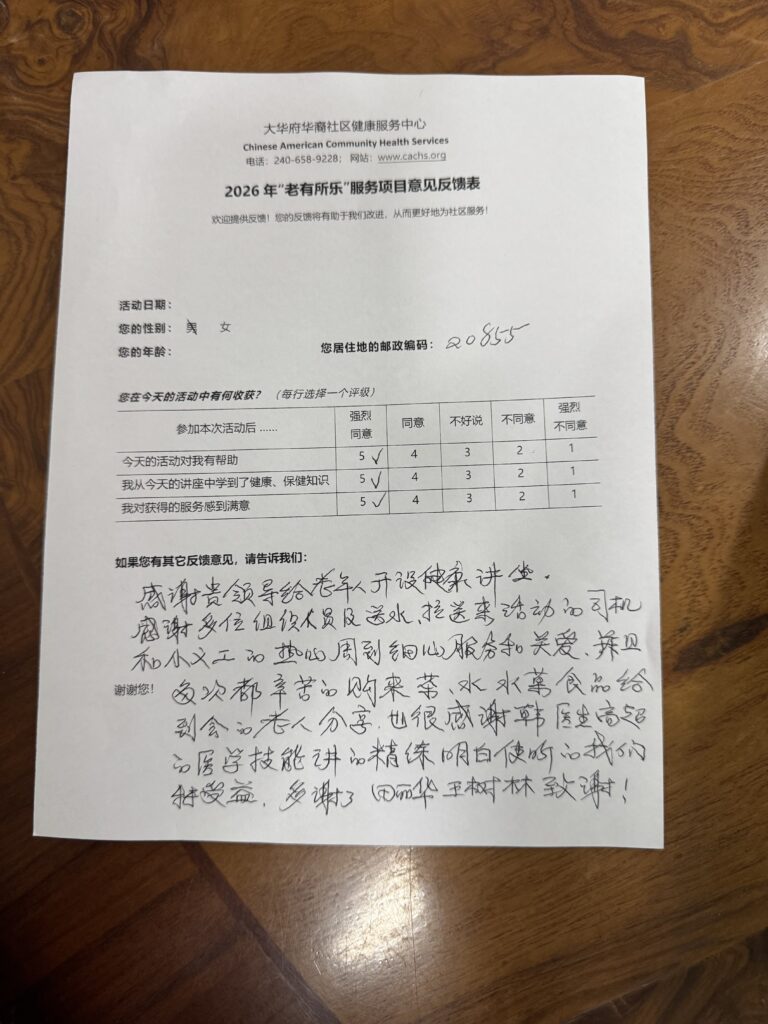 大华府华裔社区健康服务中心
Chinese American Community Health Services
电话：240-658-9228； 网站：www.cachs.org
2026 年“老有所乐”服务项目意见反馈表
欢迎提供反馈！您的反馈将有助于我们改进，从而更好地为社区服务！
活动日期：
您的性别： 男 女
您的年龄： 您居住地的邮政编码： 20855
您在今天的活动中有何收获？ （每行选择一个评级）
参加本次活动后 …… 强烈同意 同意 不好说 不同意 强烈不同意
今天的活动对我有帮助 5 ✓ 4 3 2 1
我从今天的讲座中学到了健康、保健知识 5 ✓ 4 3 2 1
我对获得的服务感到满意 5 ✓ 4 3 2 1
如果您有其它反馈意见，请告诉我们：
感谢贵领导给老年人开设健康讲坐.
感谢多位组织人员及送水、拉送来活动的司机
和小义工的热心周到细心服务和关爱、并且
谢谢您！ 每次都辛苦的购来茶、水 水菓食品给
到会的老人分享.也很感谢韩医生高超
的医学技能讲的精练明白使听的我们
受益. 多谢了 田丽华 王树林致谢！